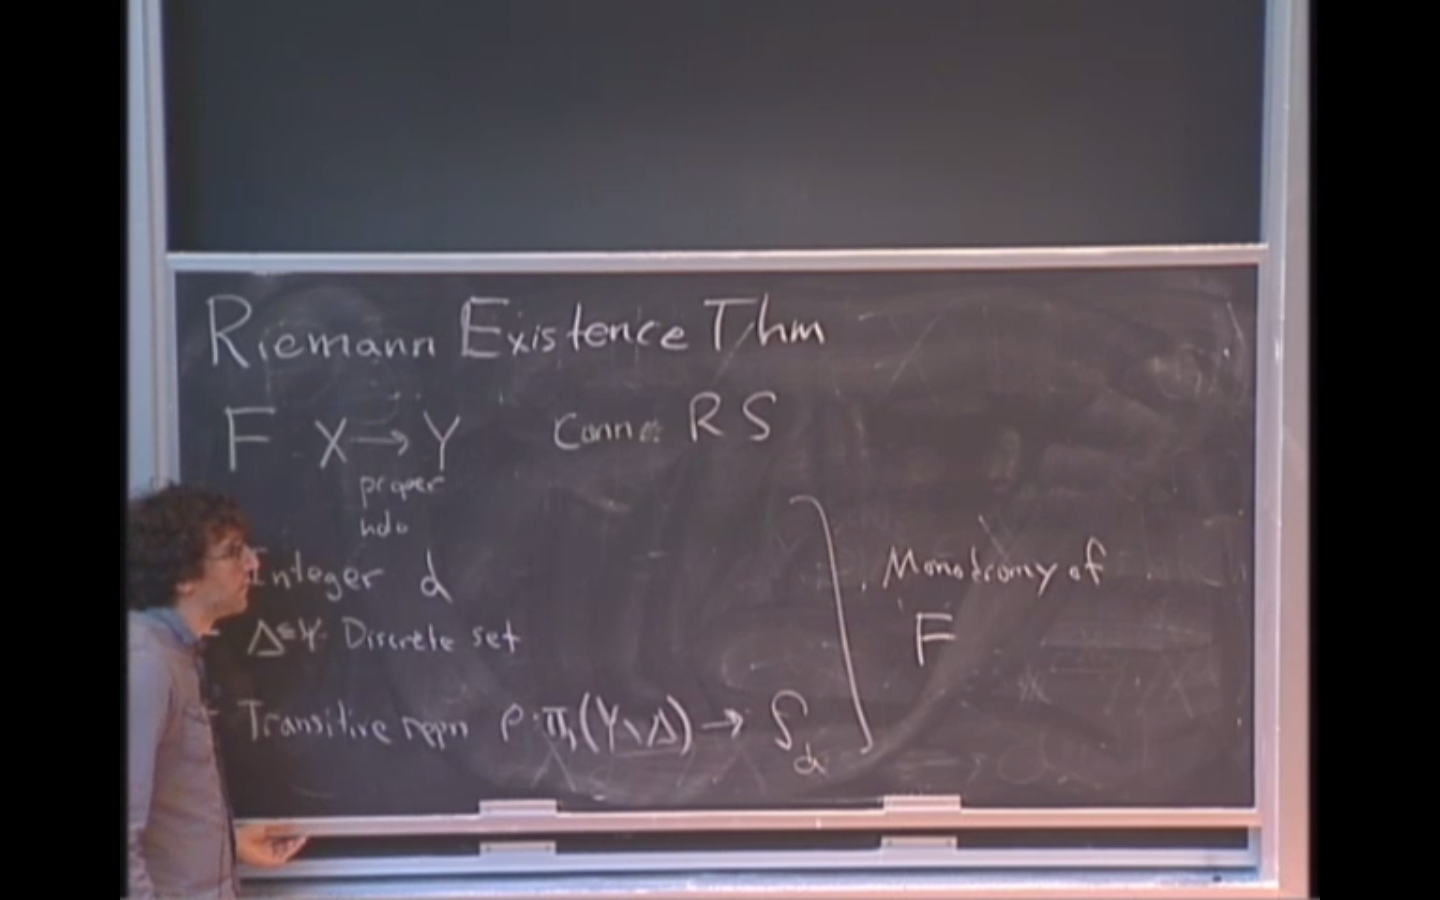 Riemann Existence Thm
F X → Y Conn. RS
proper
holo
Integer d
Δ ⊂ Y Discrete set
Transitive repn ρ: π₁(Y∖Δ) → S_d
Monodromy of
F